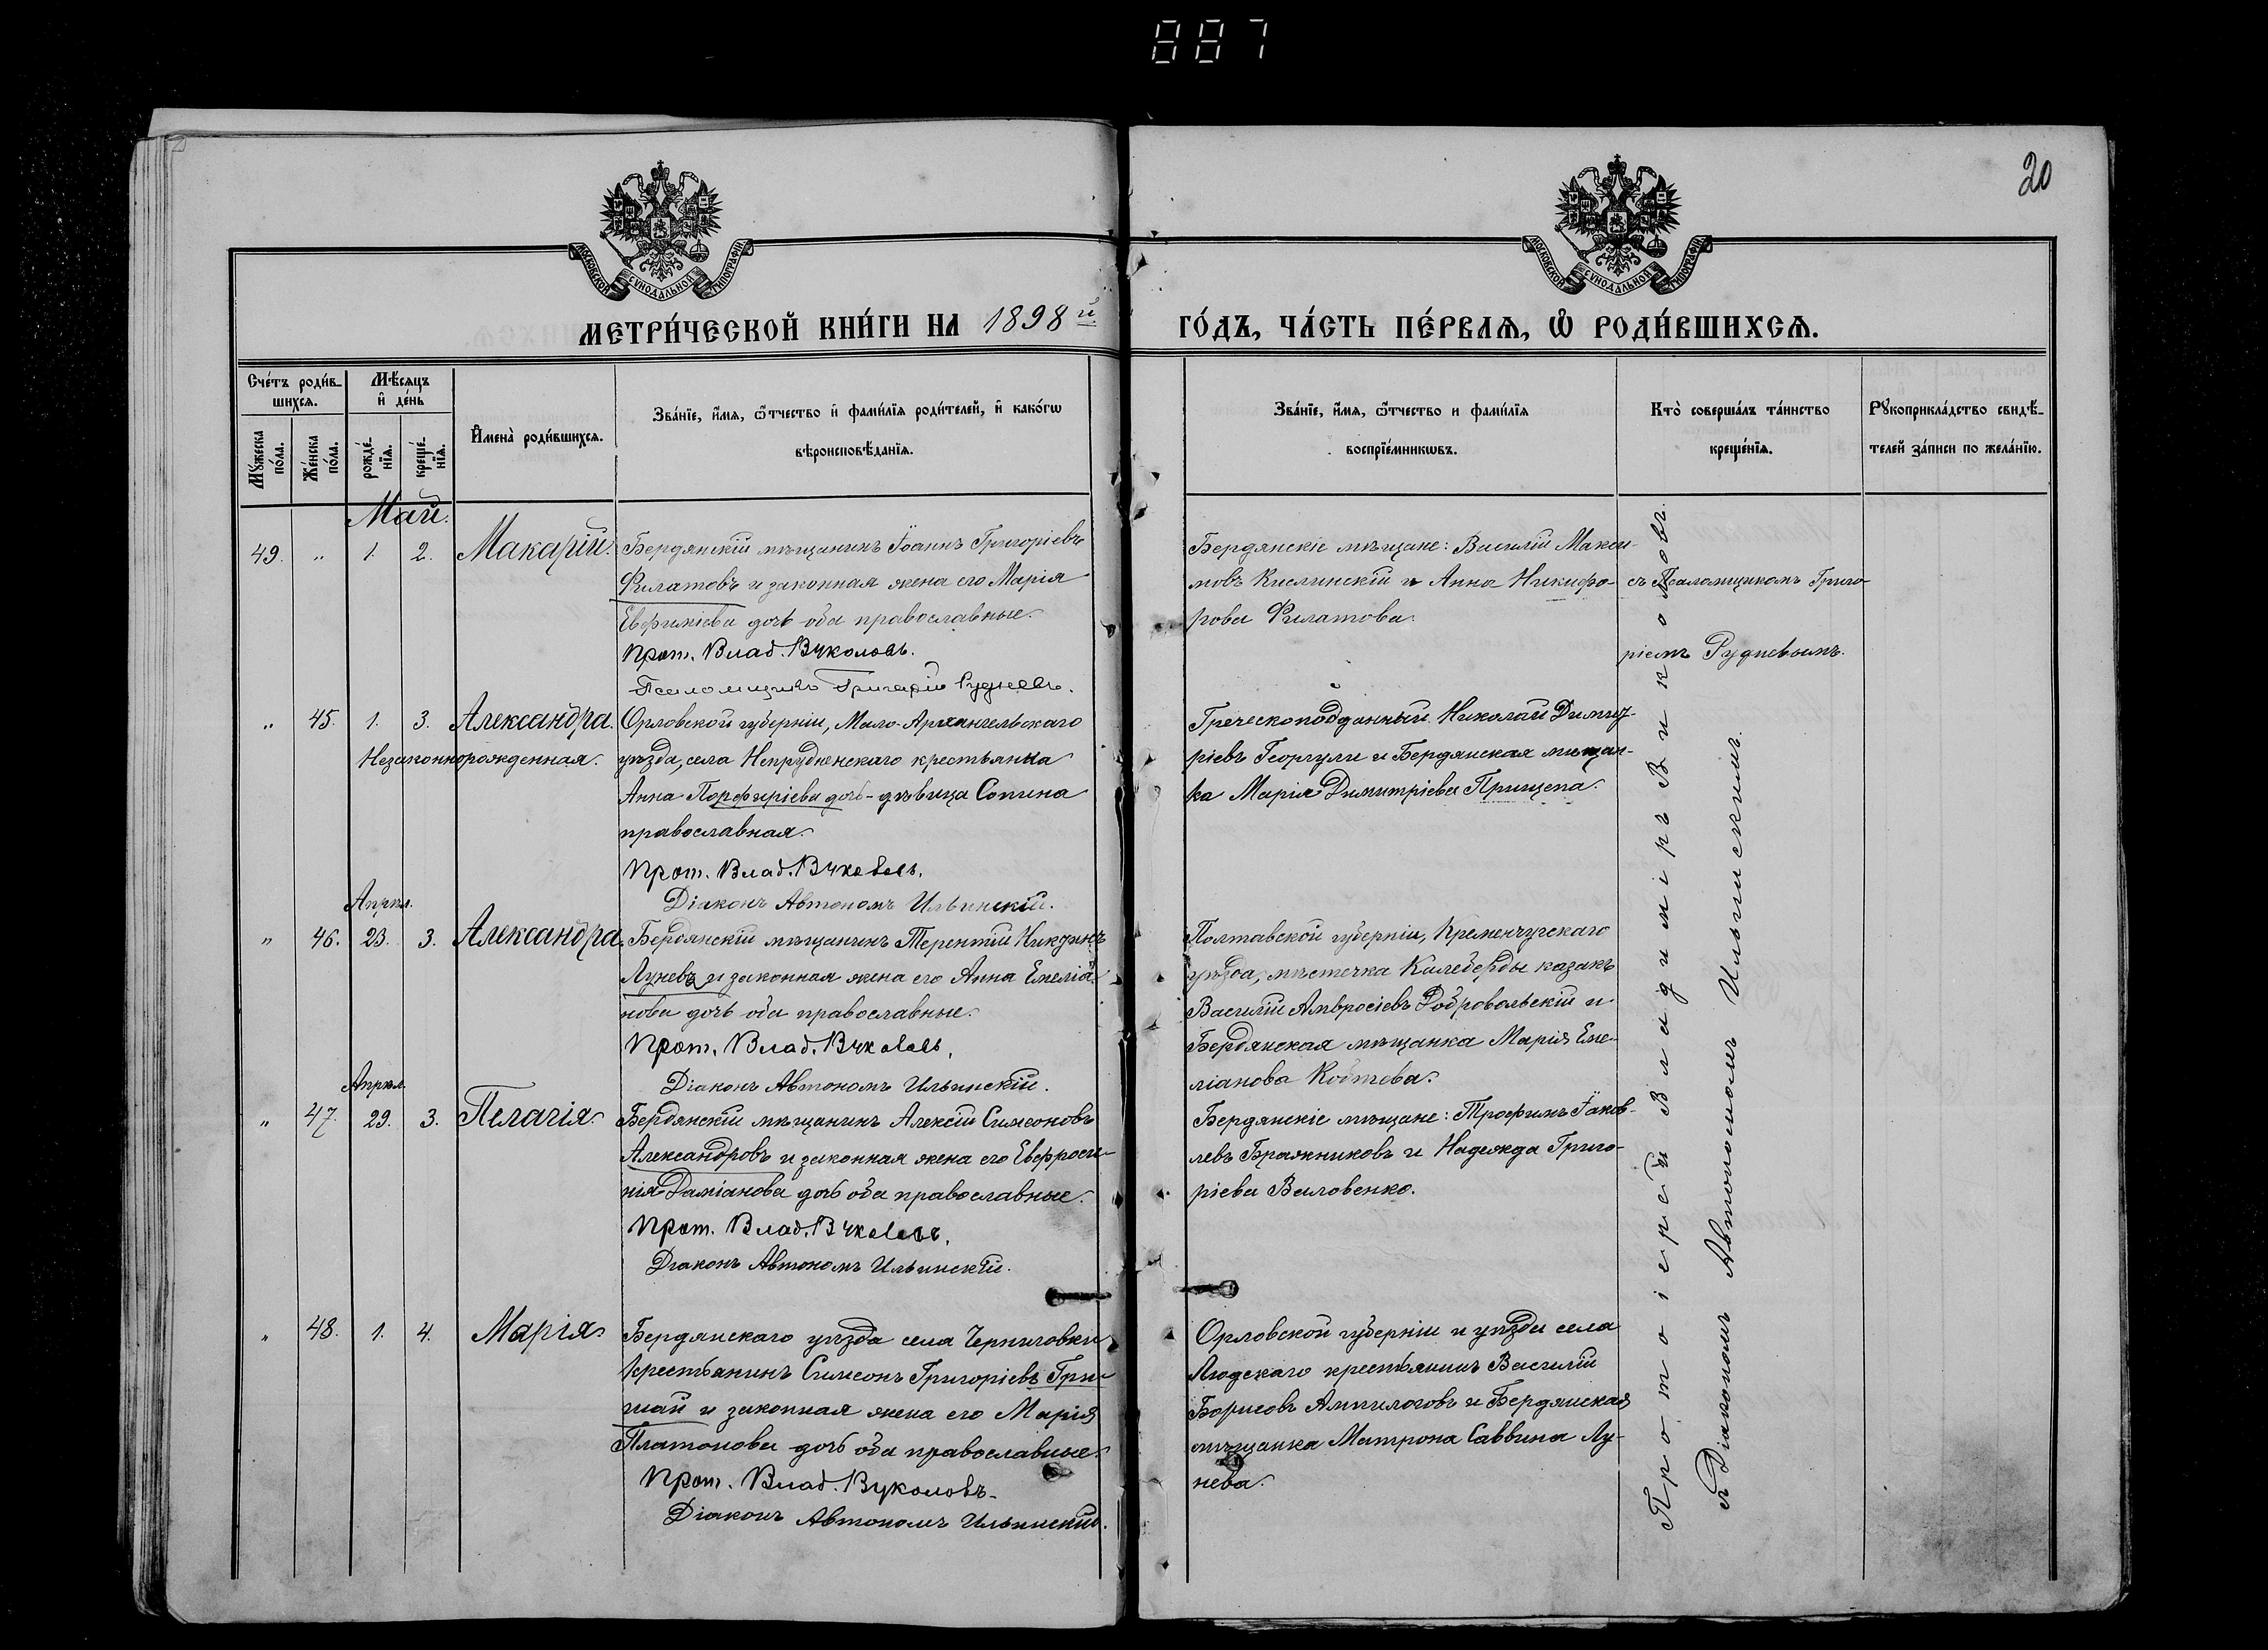 887
20
МОСКОВСКОЙ СѴНОДАЛЬНОЙ ТИПОГРАФІИ
МОСКОВСКОЙ СѴНОДАЛЬНОЙ ТИПОГРАФІИ
МЕТРИ́ЧЕСКОЙ КНИ́ГИ НА 1898 й
ГО́ДЪ, ЧА́СТЬ ПЕ́РВАѦ, Ѡ РОДИ́ВШИХСѦ.
Сче́тъ роди́в-
шихсѧ.
Мꙋ́жеска по́ла.
Же́нска по́ла.
Мѣ́сѧцъ
и҆ де́нь
рожде́-
нїѧ.
креще́-
нїѧ.
И҆мена̀ роди́вшихсѧ.
Зва́нїе, и҆́мѧ, ѻ҆́тчество и҆ фами́лїѧ роди́телей, и҆ како́гѡ
вѣроисповѣ́данїѧ.
Зва́нїе, и҆́мѧ, ѻ҆́тчество и фами́лїѧ
воспрїе́мникѡвъ.
Кто̀ соверша́лъ та́инство
креще́нїѧ.
Рꙋкоприкла́дство свидѣ́-
телей за́писи по жела́нїю.
Май.
49. „ 1. 2. Макарій.
Бердянскій мѣщанинъ Іоаннъ Григоріевъ
Филатовъ и законная жена его Марія
Евфиміева дочь оба православные.
Прот. Влад. Вуколовъ.
Псаломщикъ Григорій Рудневъ.
Бердянскіе мѣщане: Василій Макси-
мовъ Кислинскій и Анна Никифо-
рова Филатова.
съ Псаломщикомъ Григо-
ріемъ Рудневымъ.
„ 45. 1. 3. Александра.
Незаконнорожденная.
Орловской губерніи, Мало-Архангельскаго
уѣзда, села Непрудненскаго крестьянка
Анна Порфиріева дочь-дѣвица Сопина
православная.
Прот. Влад. Вуколовъ.
Діаконъ Автономъ Ильинскій.
Греческоподданный Николай Димит-
ріевъ Георгули и Бердянская мѣщан-
ка Марія Димитріева Прищепа.
Апрѣл.
„ 46. 23. 3. Александра.
Бердянскій мѣщанинъ Терентій
Луневъ и законная жена его Анна Емеліа-
нова дочь оба православные.
Прот. Влад. Вуколовъ.
Діаконъ Автономъ Ильинскій.
Полтавской губерніи, Кременчугскаго
уѣзда, мѣстечка Келеберды казакъ
Василій Амвросіевъ Добровольскій и
Бердянская мѣщанка Марія Еме-
ліанова
Апрѣл.
„ 47. 29. 3. Пелагія.
Бердянскій мѣщанинъ Алексій Симеоновъ
Александровъ и законная жена его Евфроси-
нія Даміанова дочь оба православные.
Прот. Влад. Вуколовъ.
Діаконъ Автономъ Ильинскій.
Бердянскіе мѣщане: Трофимъ Іаков-
левъ Бражниковъ и Надежда Григо-
ріева Валовенко.
„ 48. 1. 4. Марія.
Бердянскаго уѣзда села Черниговки
крестьянинъ Симеонъ Григоріевъ Гри-
шай и законная жена его Марія
Платонова дочь оба православные.
Прот. Влад. Вуколовъ.
Діаконъ Автономъ Ильинскій.
Орловской губерніи и уѣзда села
Людскаго крестьянинъ Василій
Борисовъ Ампилоговъ и Бердянская
мѣщанка Матрона Саввина Лу-
нева.
Протоіерей Владиміръ Вуколовъ.
съ Діакономъ Автономомъ Ильинскимъ.